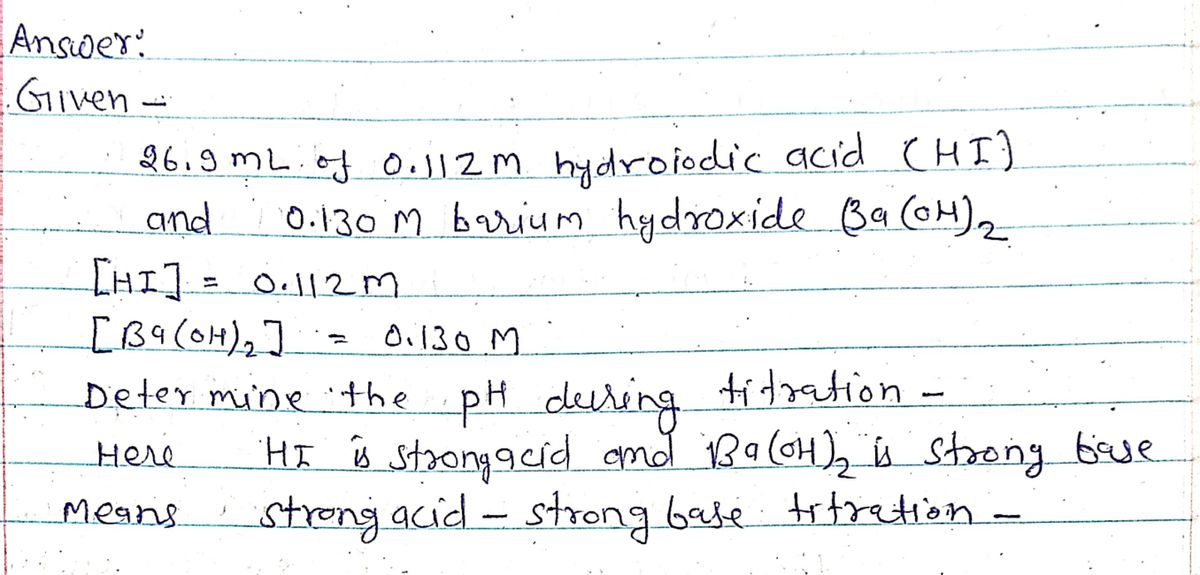 Answer:
Given -
26.9 mL. of 0.112M hydroiodic acid (HI)
and 0.130 M barium hydroxide Ba(OH)₂
[HI] = 0.112M
[Ba(OH)₂] = 0.130 M
Determine the pH during titration -
Here HI is strong acid and Ba(OH)₂ is strong base
Means strong acid - strong base titration -